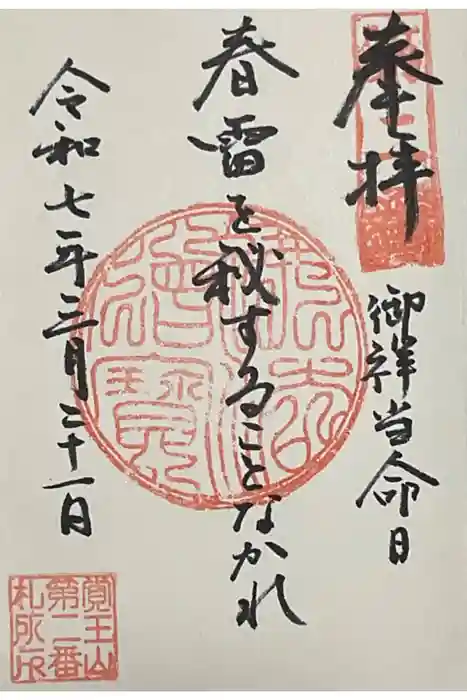 奉拝
御祥当命日
春雷を秘することなかれ
令和七年三月三十一日
覚王山
第二番
札所